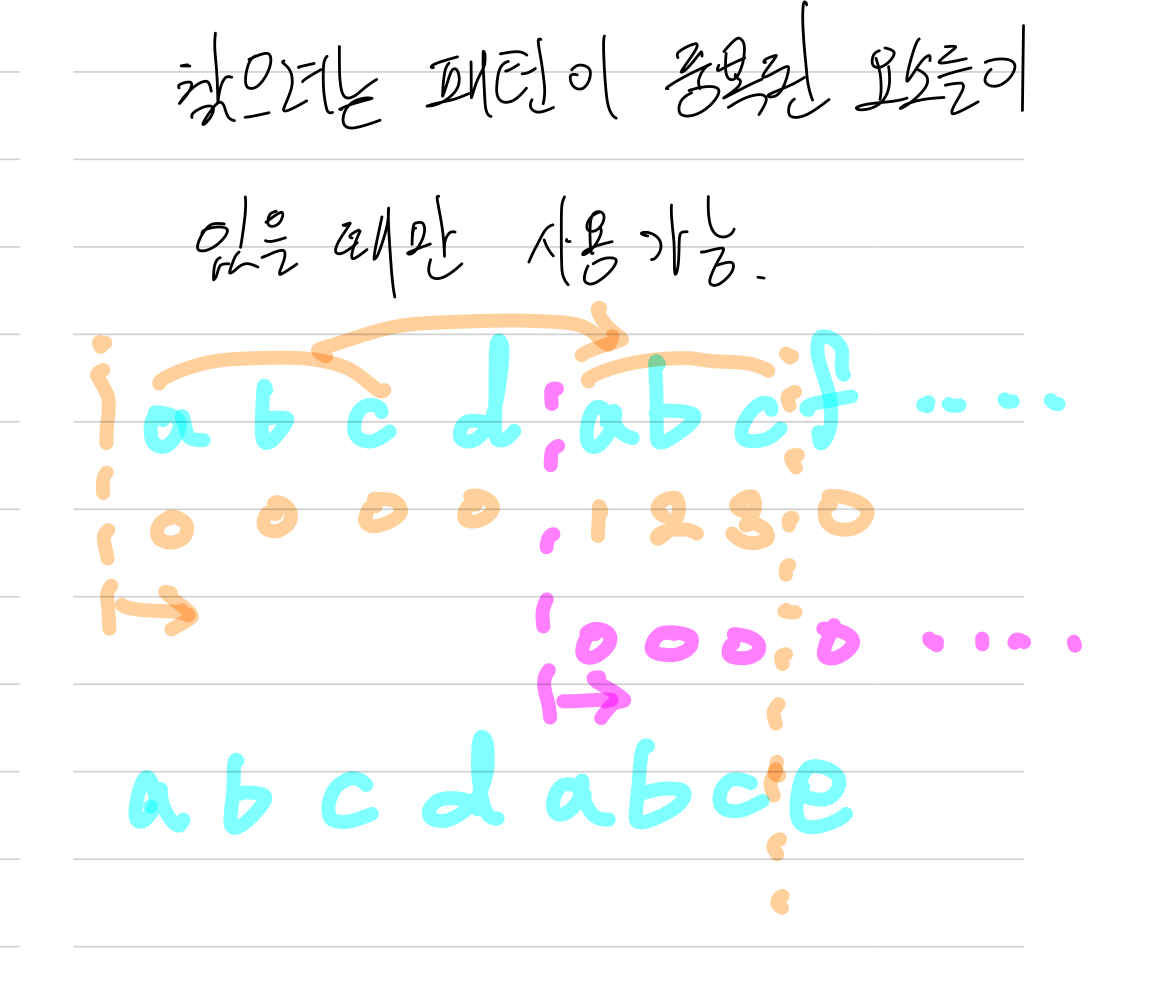 찾으려는 패턴이 중복된 요소들이
있을 때만 사용가능.
a b c d a b c f ....
0 0 0 0 1 2 3 0
0 0 0 0 ....
a b c d a b c e